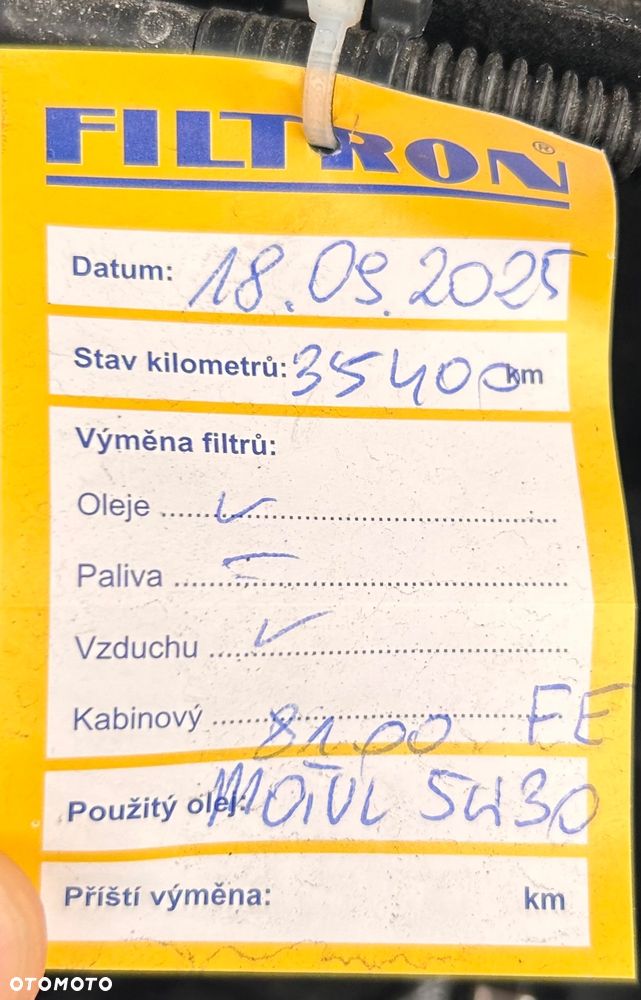 FILTRON®
Datum: 18.09.2025
Stav kilometrů: 35400 km
Výměna filtrů:
Oleje ✓
Paliva –
Vzduchu ✓
Kabinový
8100 FE
Použitý olej: MOTUL 5W30
Příští výměna: km
OTOMOTO